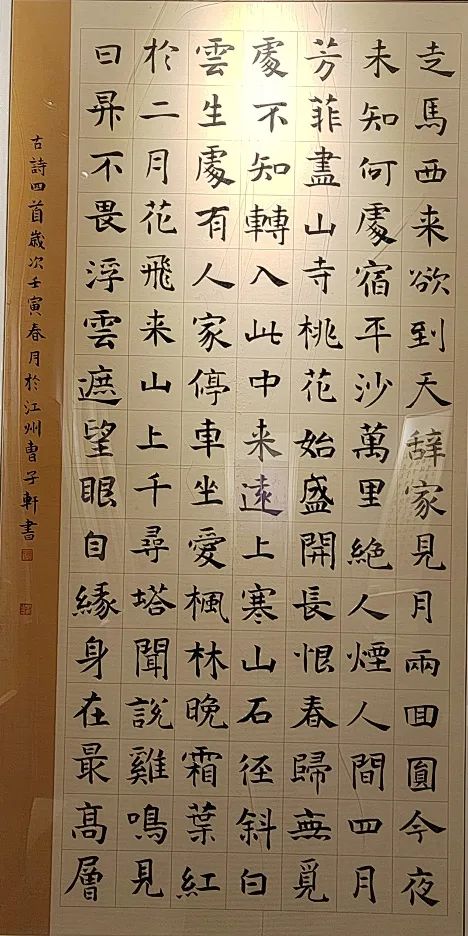 走馬西来欲到天辞家見月兩回圓今夜
未知何處宿平沙萬里絶人煙人間四月
芳菲盡山寺桃花始盛開長恨春歸無覓
處不知轉入此中来遠上寒山石径斜白
雲生處有人家停車坐愛楓林晚霜葉紅
於二月花飛来山上千尋塔聞説雞鳴見
日昇不畏浮雲遮望眼自緣身在最高層
古詩四首歲次壬寅春月於江州曹子軒書